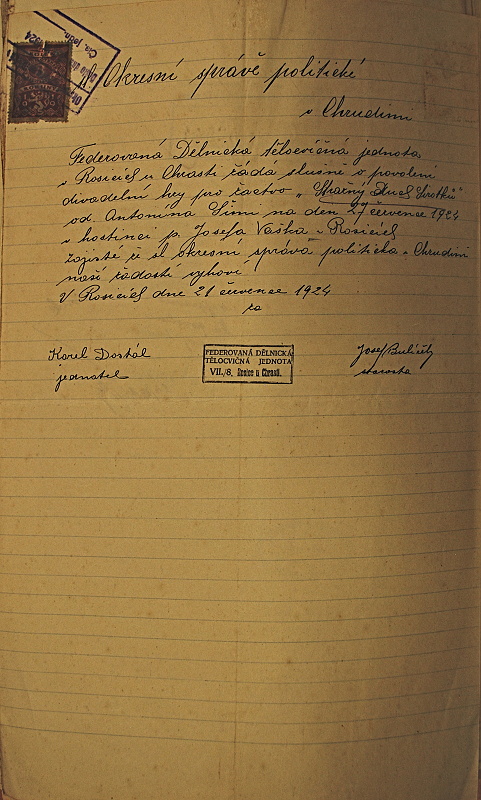 Okresní správě politické
v Chrudimi
Federovaná Dělnická tělocvičná jednota
v Rosicích u Chrasti žádá slušně o povolení
divadelní hry pro žactvo „
od Antonína Šimi na den 27 července 1924
v hostinci p. Josefa Vaška v Rosicích
že si okresní správa politická v Chrudimi
naší žádosti vyhoví
V Rosicích dne 21 července 1924
za
Karel Dostál
jednatel
FEDEROVANÁ DĚLNICKÁ
TĚLOCVIČNÁ JEDNOTA
VII./8. Rosice u Chrasti.
Josef
starosta
1924